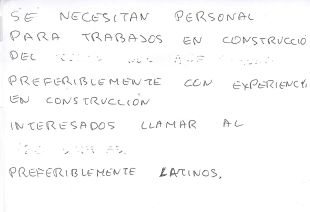 SE NECESITAN PERSONAL
PARA TRABAJOS EN CONSTRUCCIO
DEL
PREFERIBLEMENTE CON EXPERIENCI
EN CONSTRUCCIÓN
INTERESADOS LLAMAR AL
PREFERIBLEMENTE LATINOS.